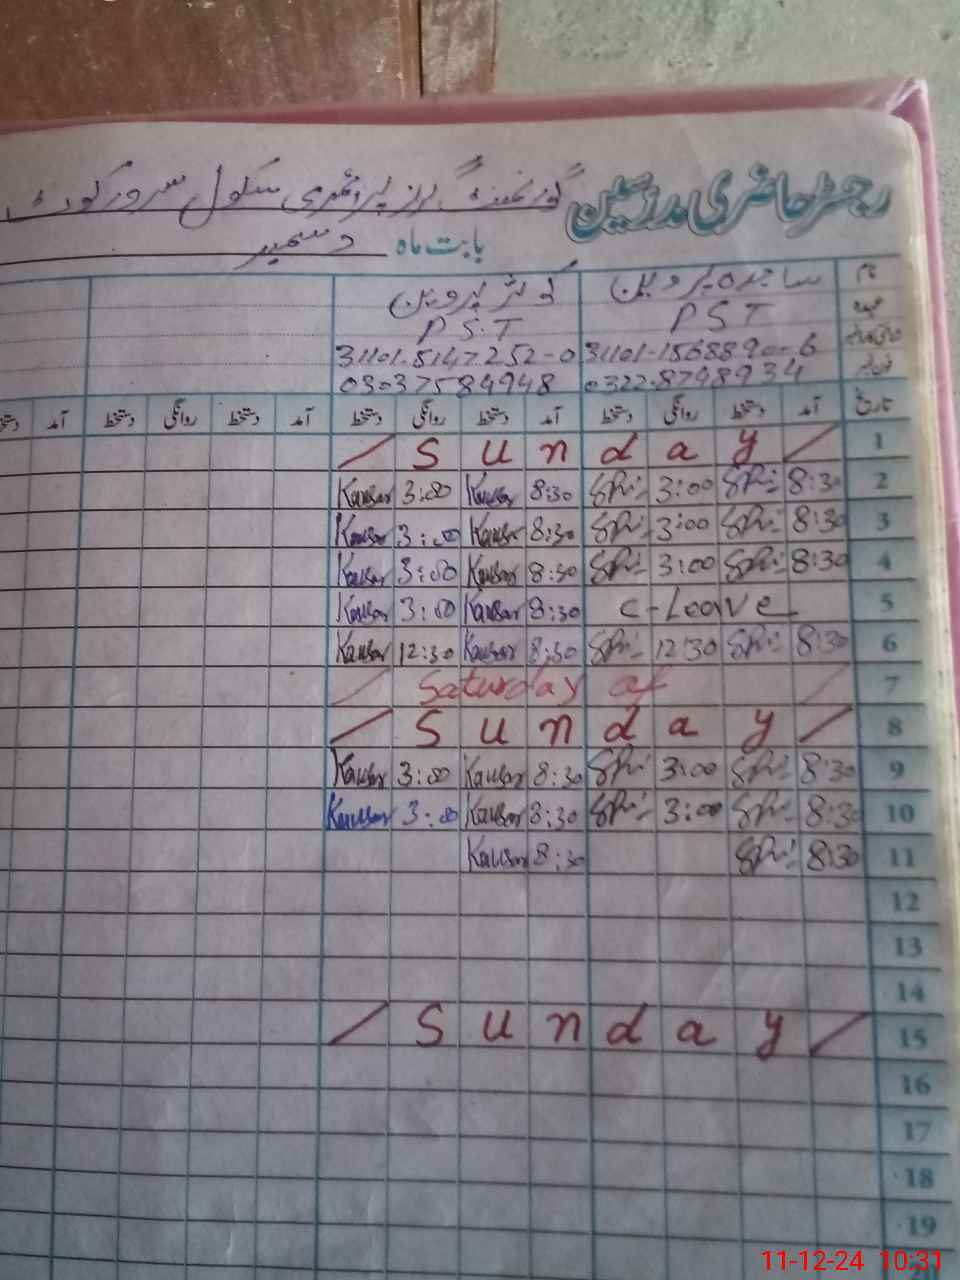 رجسٹر حاضری مدرسین گورنمنٹ گرلز پرائمری سکول سرور کوٹ
بابت ماہ دسمبر
نام ساجدہ پروین کوثر پروین
عہدہ PST P.S.T
شناختی کارڈ نمبر 31101-1568890-6 31101.5147252-0
فون نمبر 0322.8748934 03037584948
تاریخ آمد دستخط روانگی دستخط آمد دستخط روانگی دستخط آمد دستخط روانگی دستخط آمد دستخط
/ S u n d a y / 1
Kausar 3:00 Kausar 8:30 3:00 8:30 2
Kausar 3:00 Kausar 8:30 3:00 8:30 3
Kausar 3:00 Kausar 8:30 3:00 8:30 4
Kausar 3:00 Kausar 8:30 C-Leave 5
Kausar 12:30 Kausar 8:30 12:30 8:30 6
/ Saturday of / 7
/ S u n d a y / 8
Kausar 3:00 Kausar 8:30 3:00 8:30 9
Kausar 3:00 Kausar 8:30 3:00 8:30 10
Kausar 8:30 8:30 11
12
13
14
/ S u n d a y / 15
16
17
18
19
11-12-24 10:31